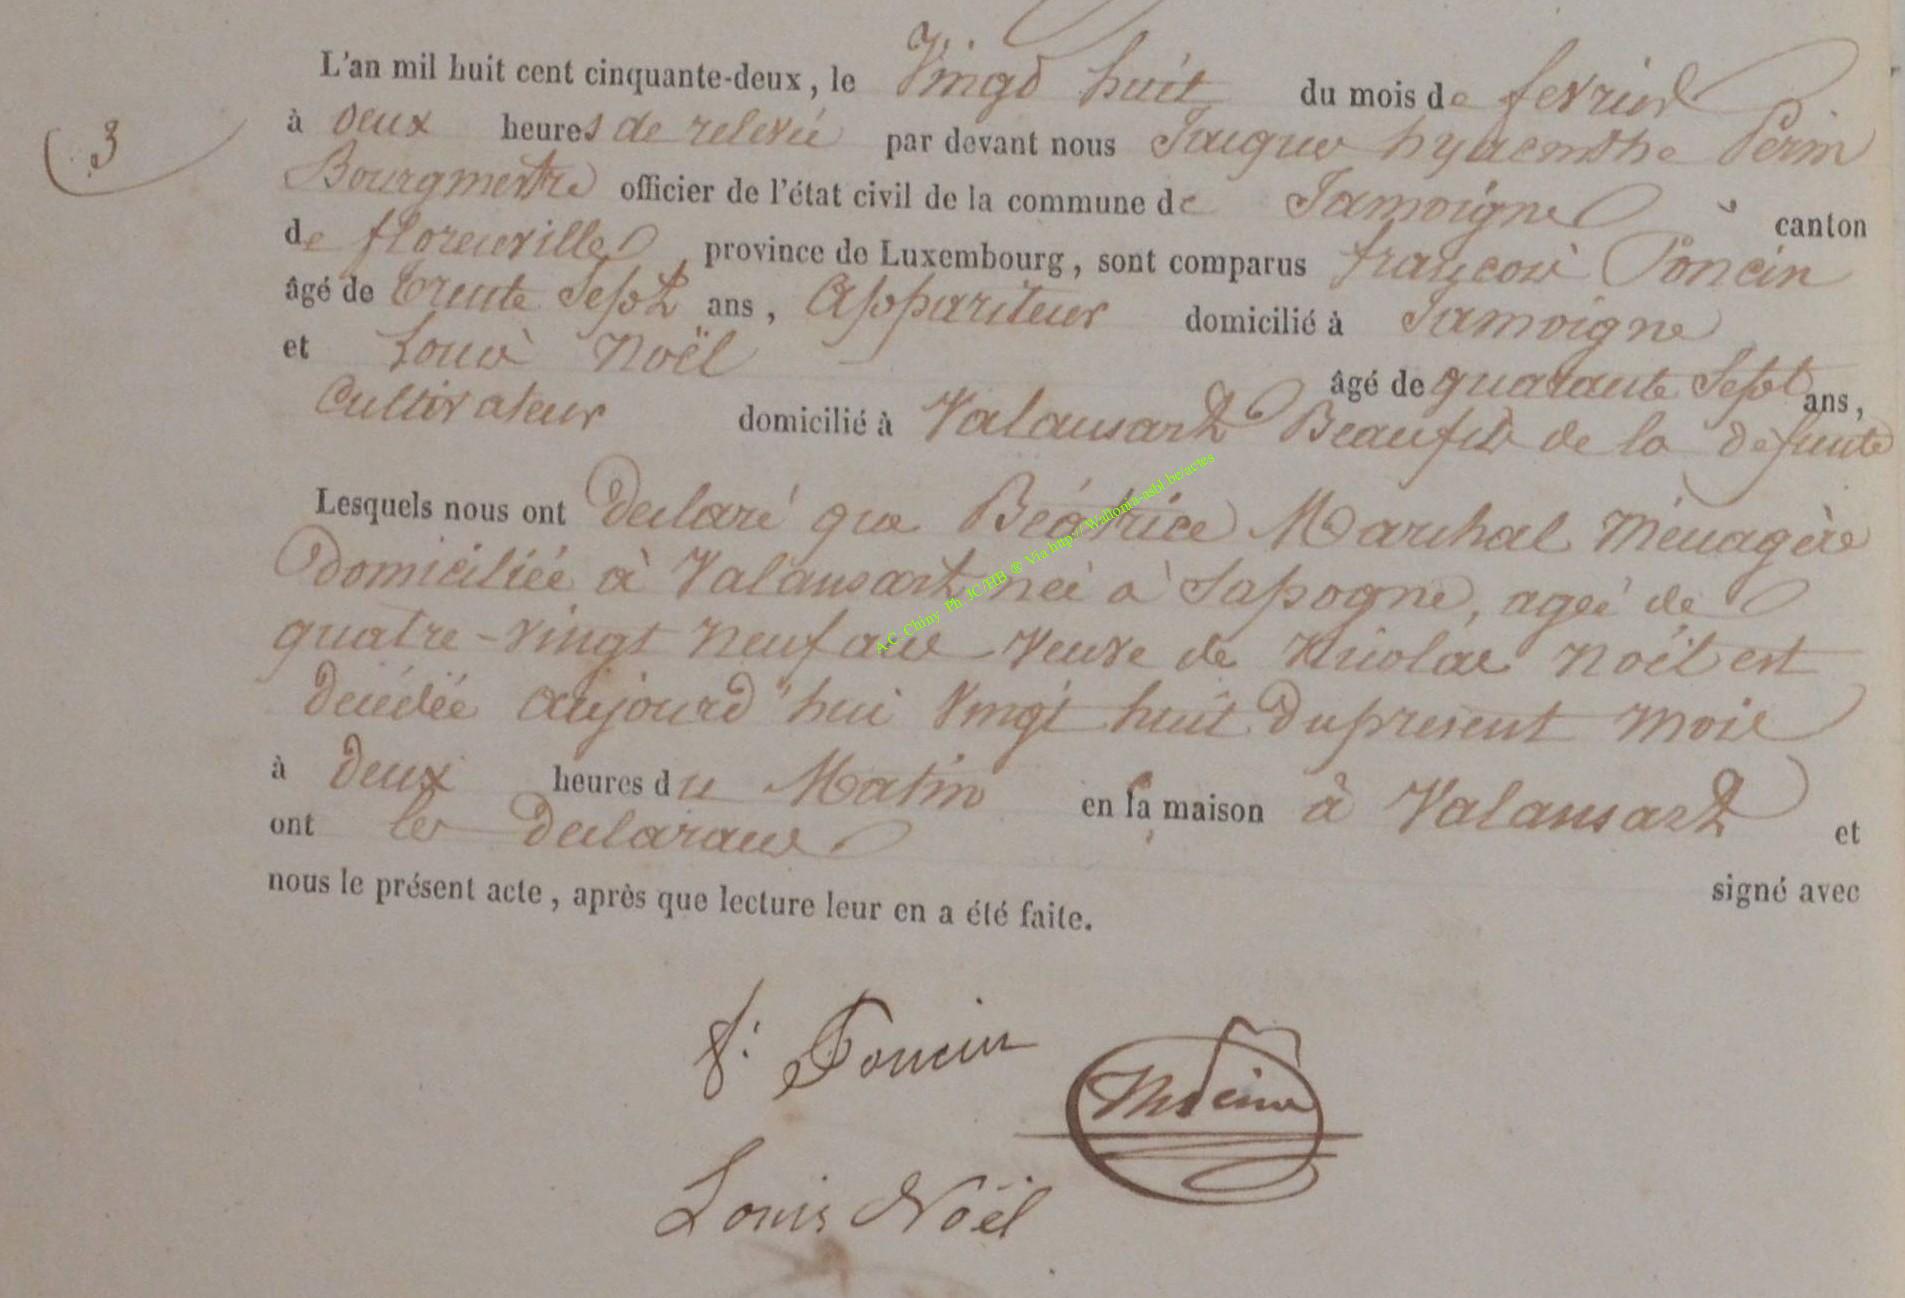 L'an mil huit cent cinquante-deux, le Vingt huit du mois de fevrier
3
à deux heures de relevée par devant nous Jacques hyacinthe Perin
Bourgmestre officier de l'état civil de la commune de Jamoigne canton
de florenville, province de Luxembourg, sont comparus françois Poncin
âgé de trente Sept ans, Appariteur domicilié à Jamoigne
et Louis Noël âgé de quarante Sept ans,
Cultivateur domicilié à Valansart Beaufils de la defunte
Lesquels nous ont declaré que Béatrice Marchal Ménagère
Domiciliée à Valansart née à Sapogne, agée de
quatre-vingt neuf ans veuve de Nicolas Noël est
décédée aujourd'hui vingt huit du present mois
à deux heures du Matin en sa maison à Valansart et
ont les declarans signé avec
nous le présent acte, après que lecture leur en a été faite.
f: Poncin
Louis Noël
A.C. Chiny Ph JC/HB ® Via http://Wallonia-asbl.be/actes